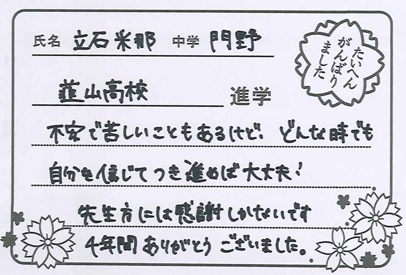 氏名 立石米那 中学 門野
たいへん
がんばり
ました
韮山高校 進学
不安で苦しいこともあるけど、どんな時でも
自分を信じてつき進めば大丈夫!
先生方には感謝しかないです
4年間ありがとうございました。